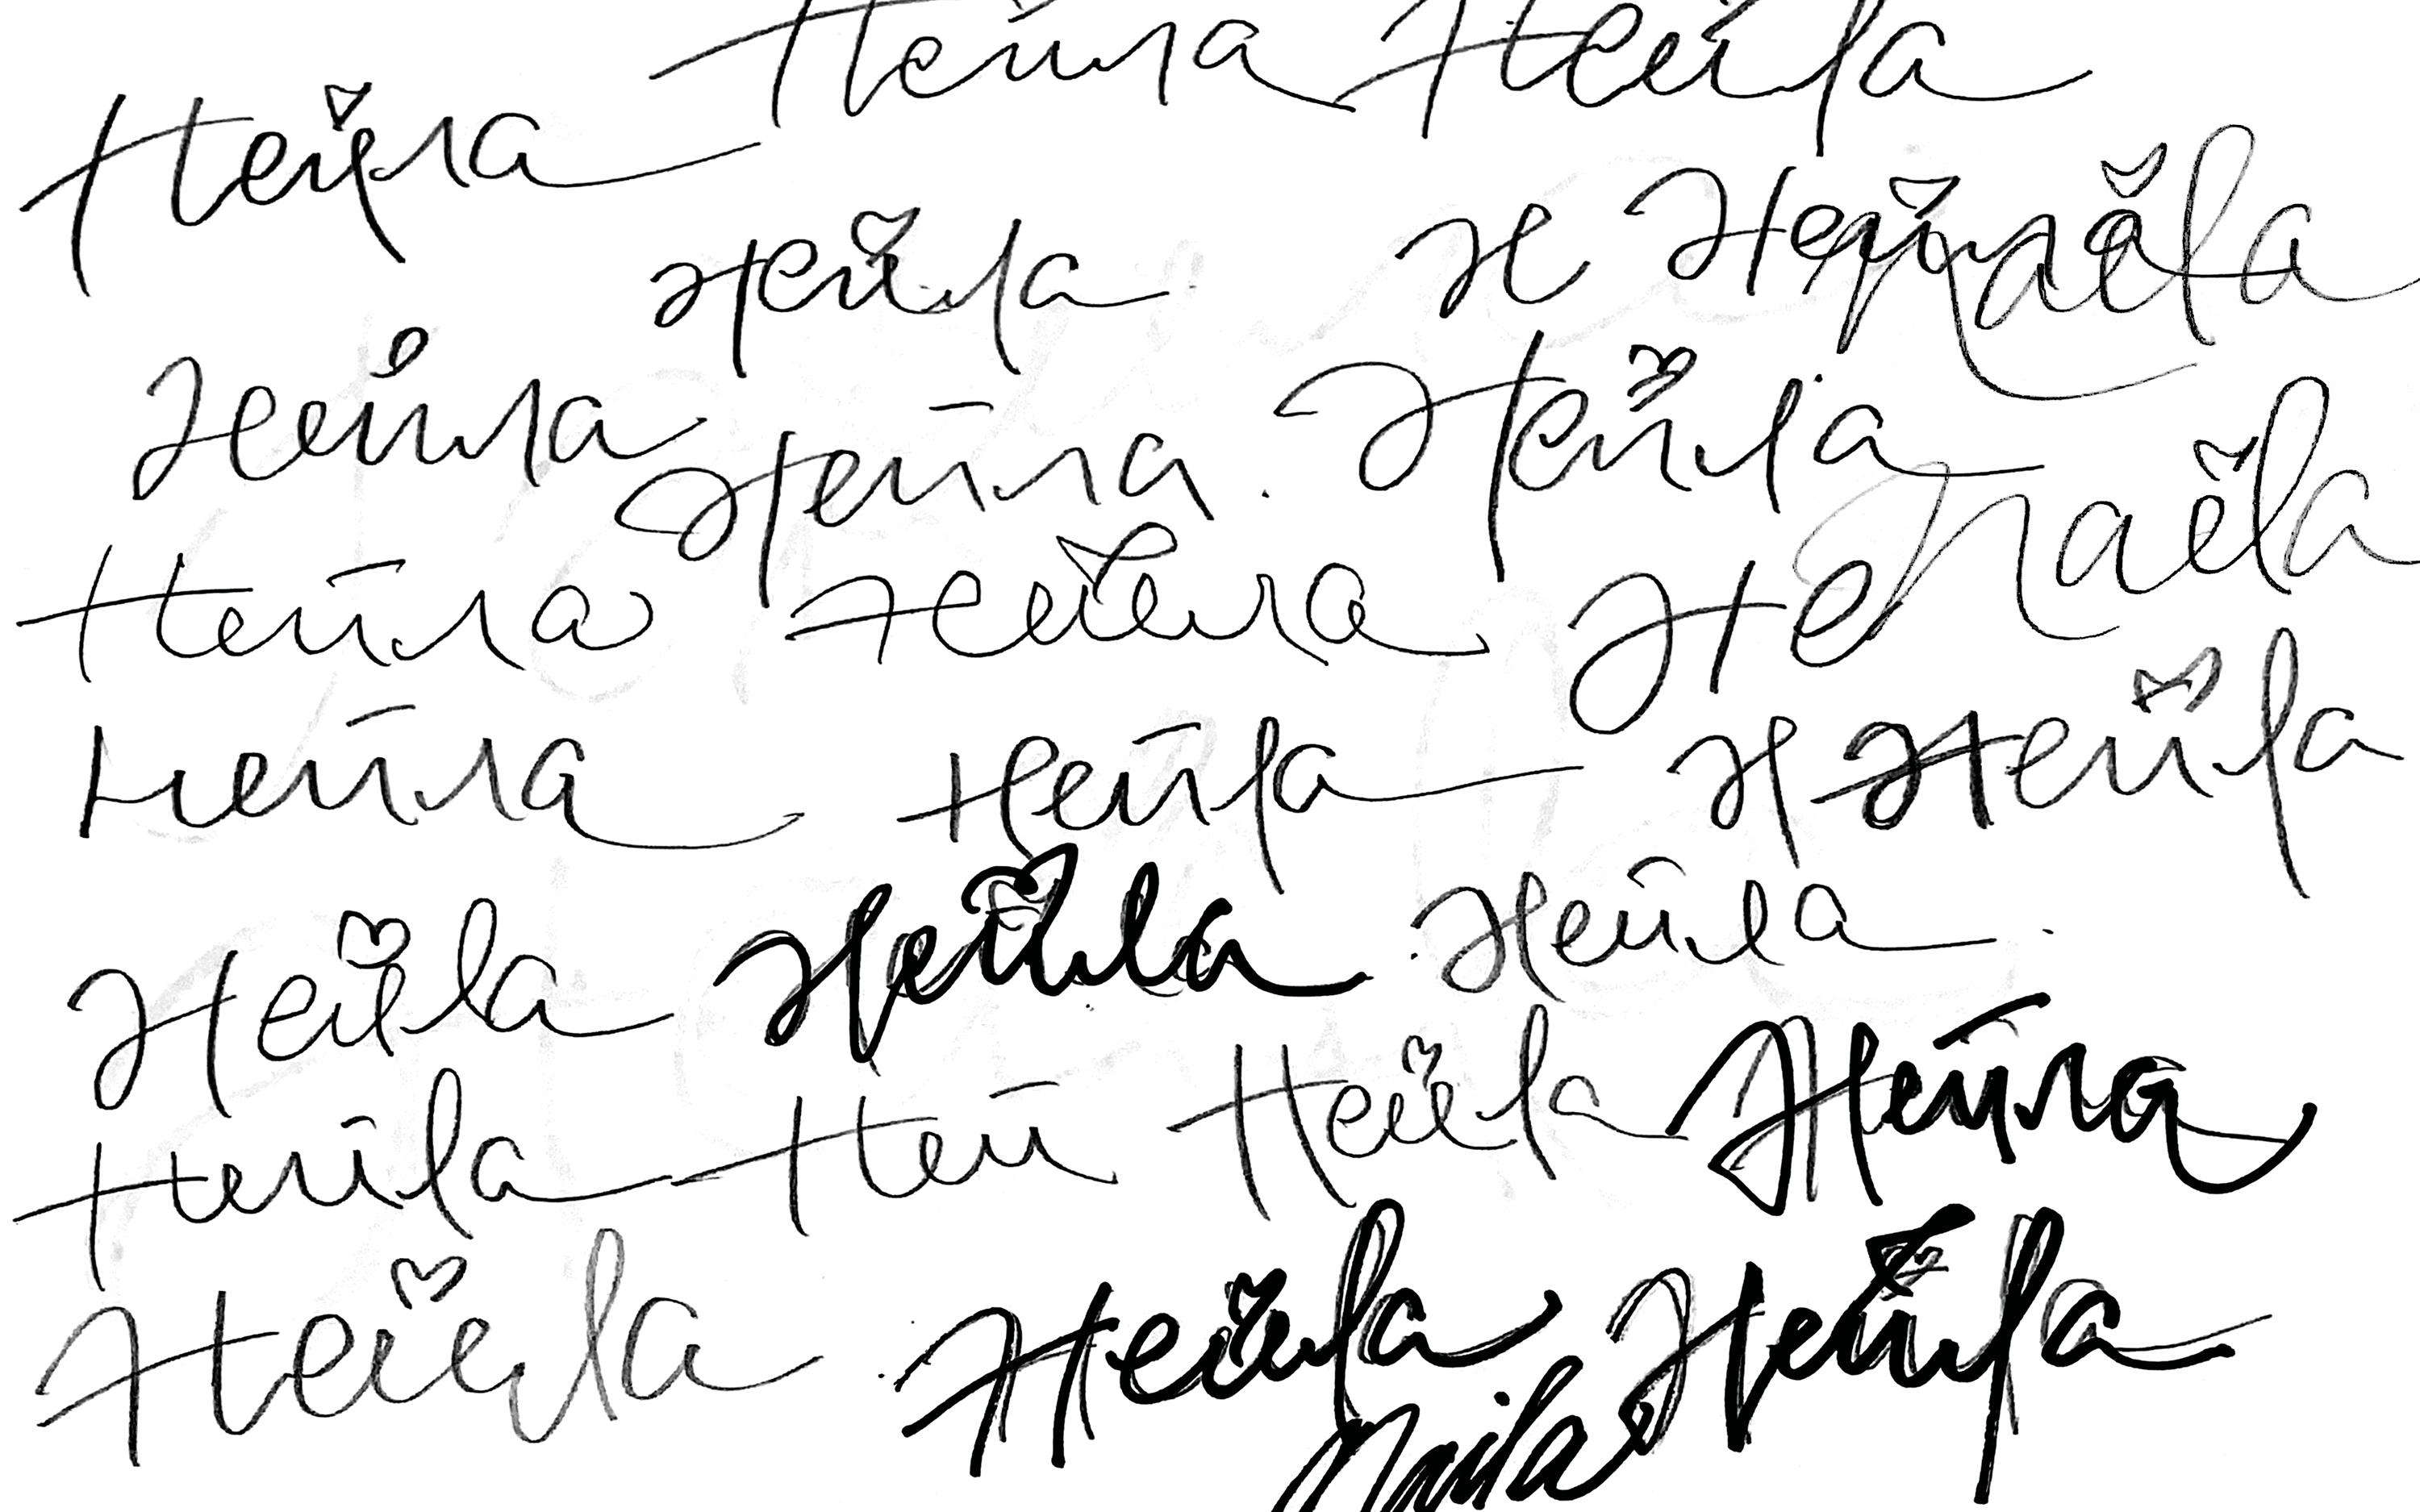 Нейла Нейла
Нейла
Нейла Н Нейла Naëla
Нейла Нейла Нейла Naëla
Нейла Нейла Не
Нейла Нейла Н Нейла
Нейла Нейла Нейла
Нейла Ней Нейла Нейла
Нейла Нейла Нейла
Naila